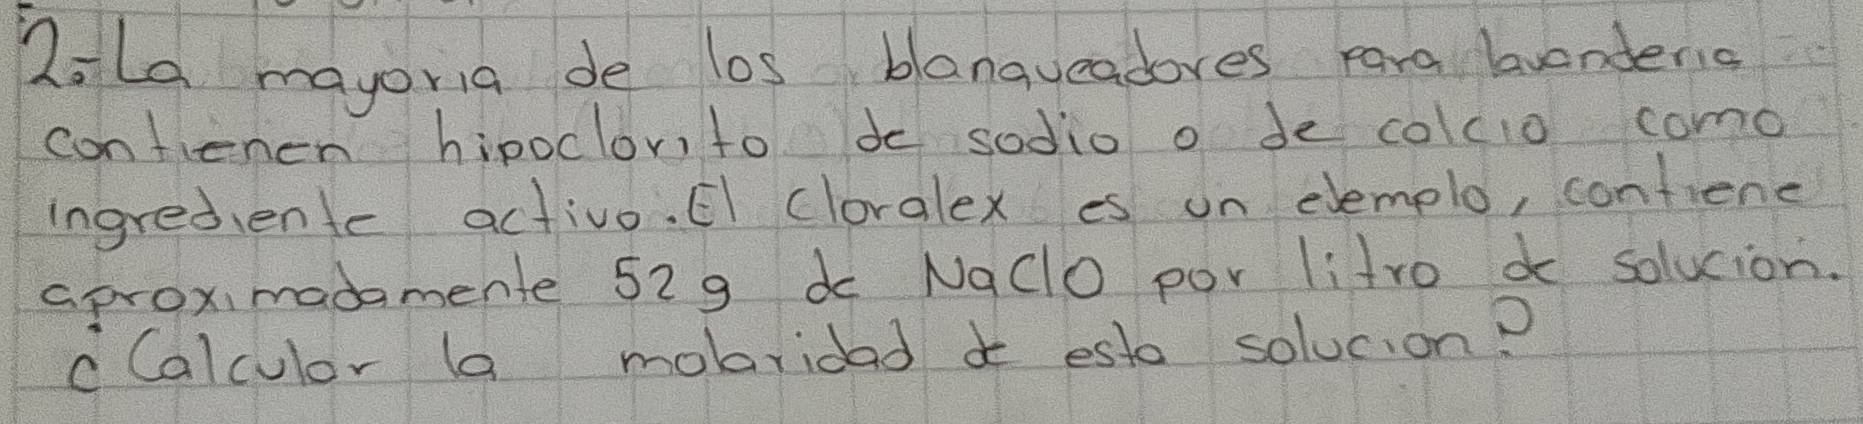 2.- La mayoria de los blanqueadores para lavanderia
contienen hipoclorito de sodio o de calcio como
ingrediente activo. El Cloralex es un ejemplo, contiene
aproximadamente 52 g de NaClO por litro de solución.
¿Calcular la molaridad de esta solucion?